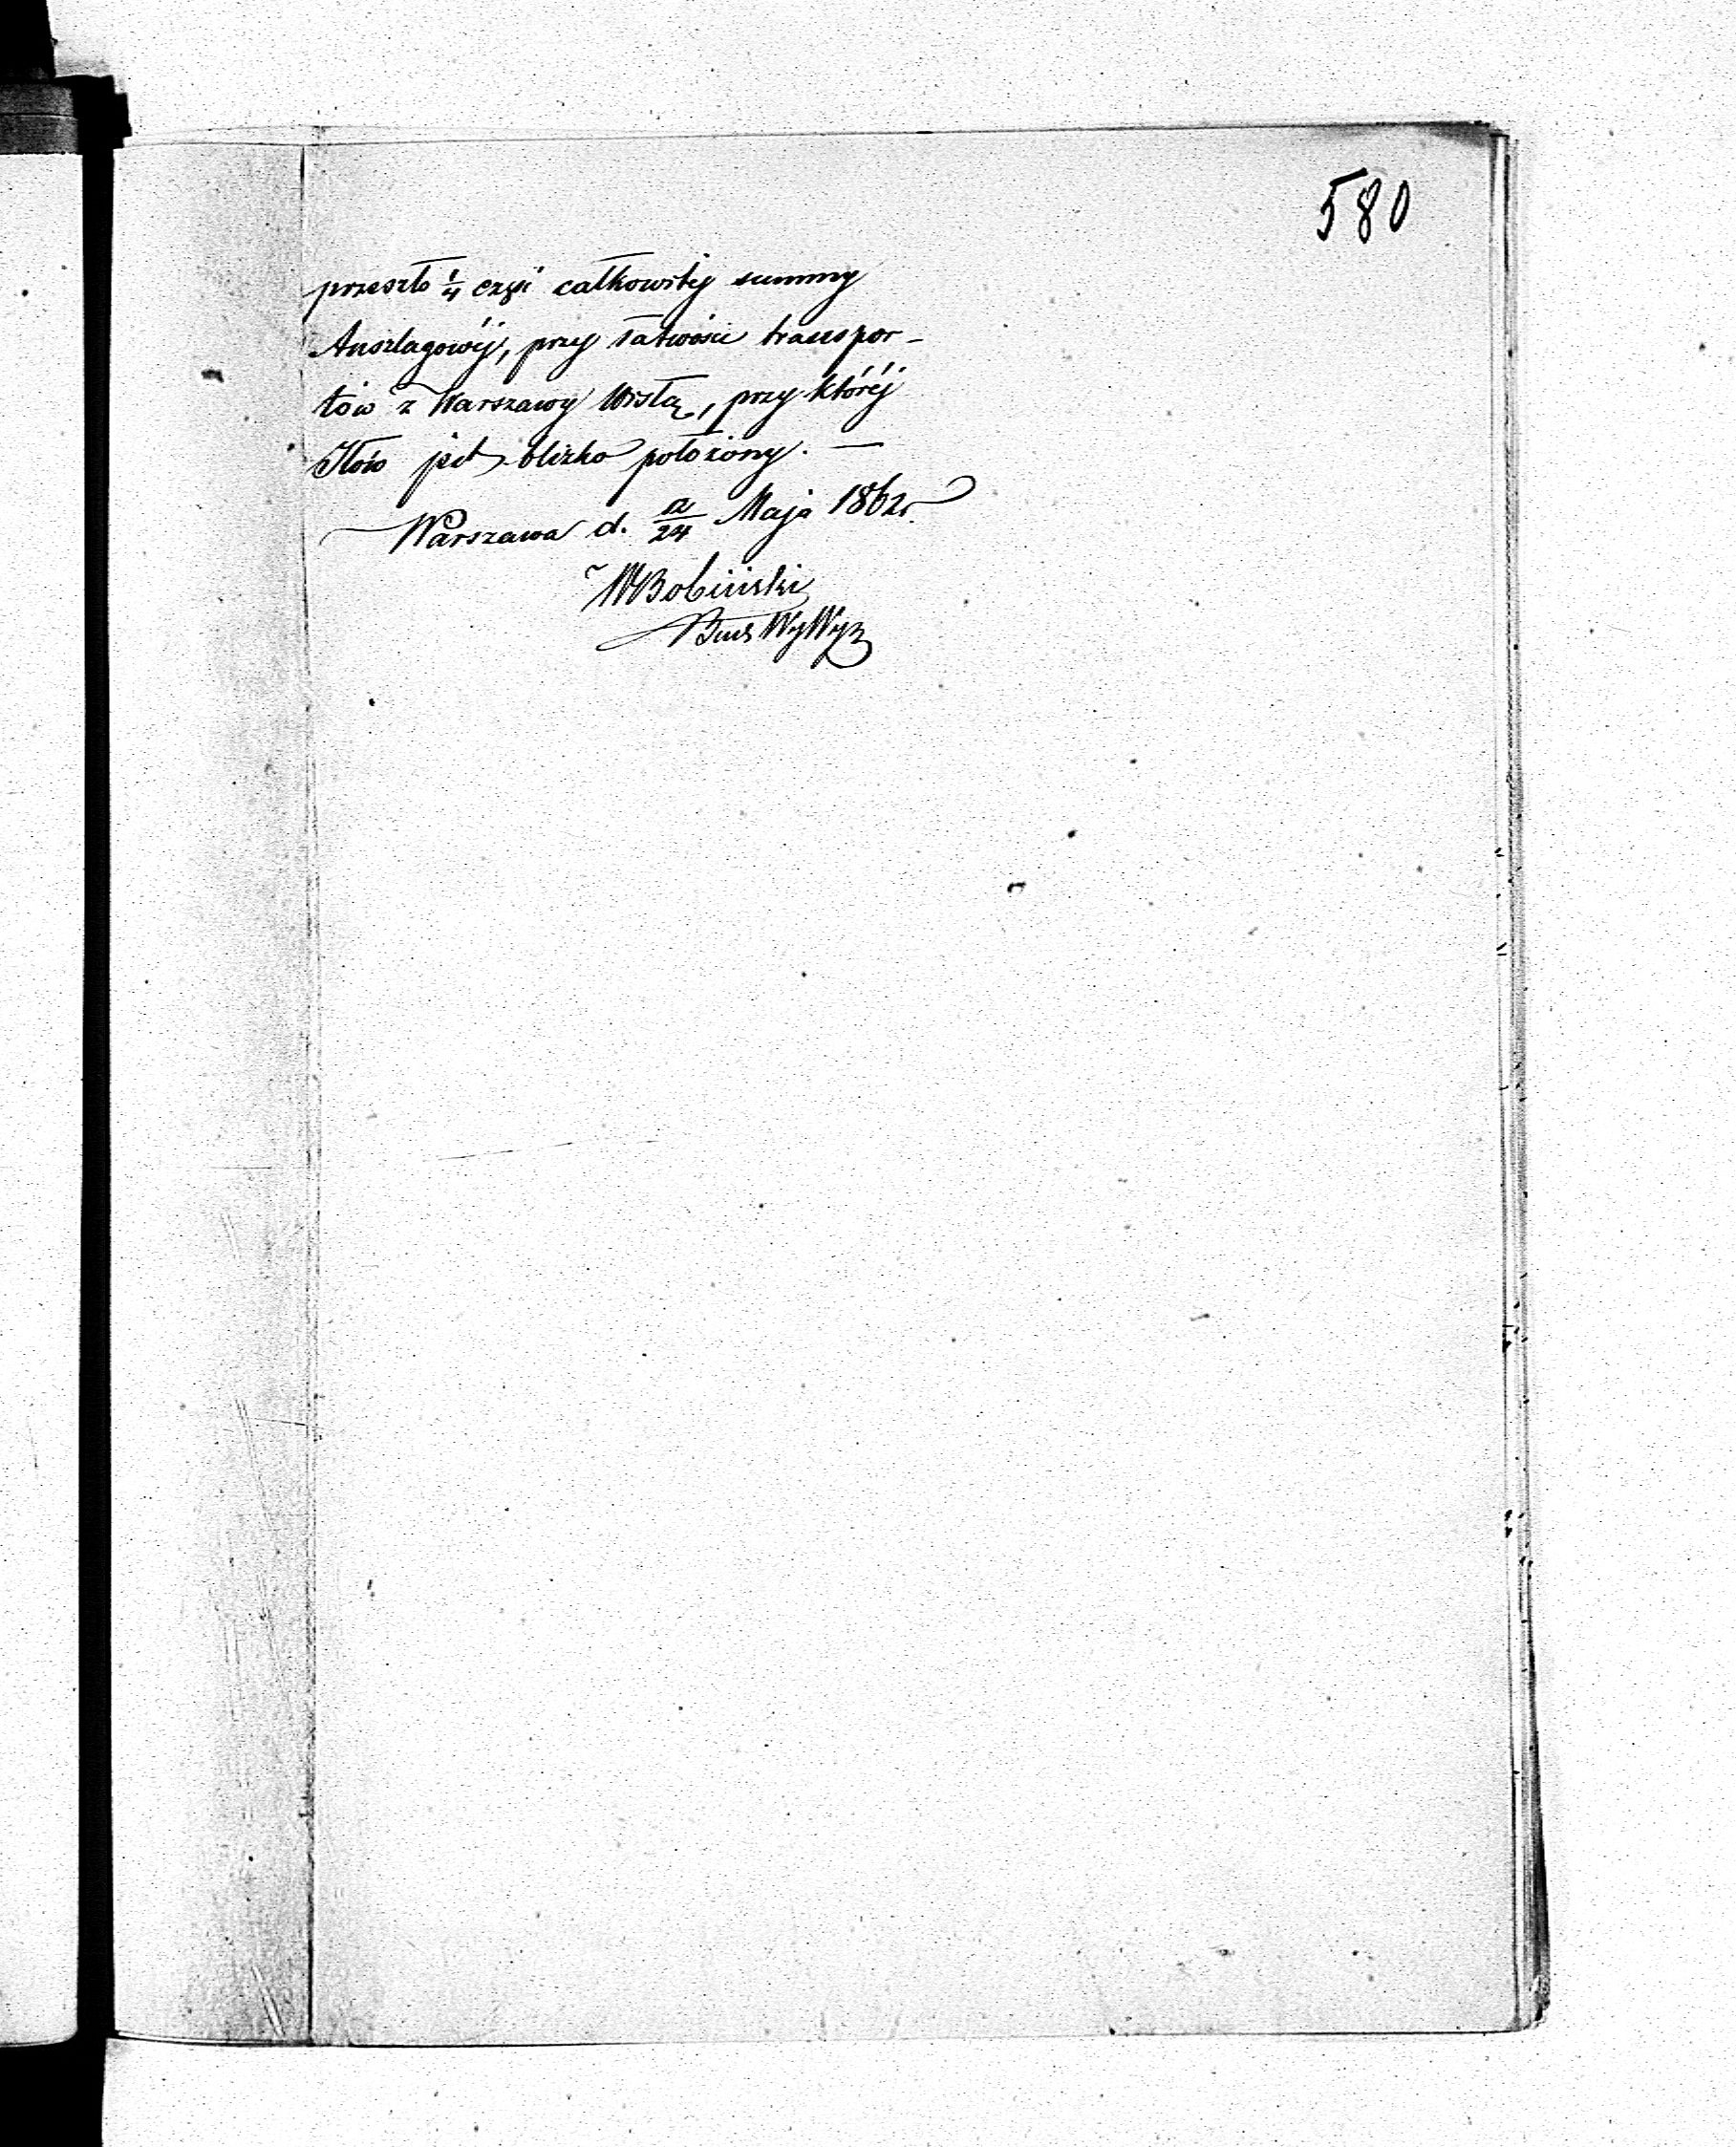 580
przeszło 1/4 częśi całkowitéj summy
Anszlagowéj, przy łatwości transpor-
tów z Warszawy Wisłą, przy któréj
Iłów jest blizko położony. —
Warszawa d. 12/24 Maja 1862 r.
WBobiński
Bud WyWyz